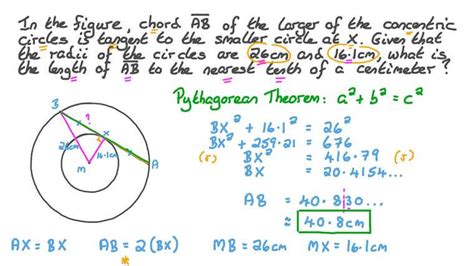 In the figure, chord AB of the larger of the concentric
circles is tangent to the smaller circle at X. Given that
the radii of the circles are 26cm and 16.1cm, what is
the length of AB to the nearest tenth of a centimeter?
Pythagorean Theorem: a² + b² = c²
BX² + 16.1² = 26²
BX² + 259.21 = 676
(5) BX² = 416.79 (5)
BX = 20.4154...
AB = 40.830...
≈ 40.8cm
B
?
x
x
x
26cm
16.1cm
M
A
AX = BX AB = 2(BX) MB = 26cm MX = 16.1cm
*